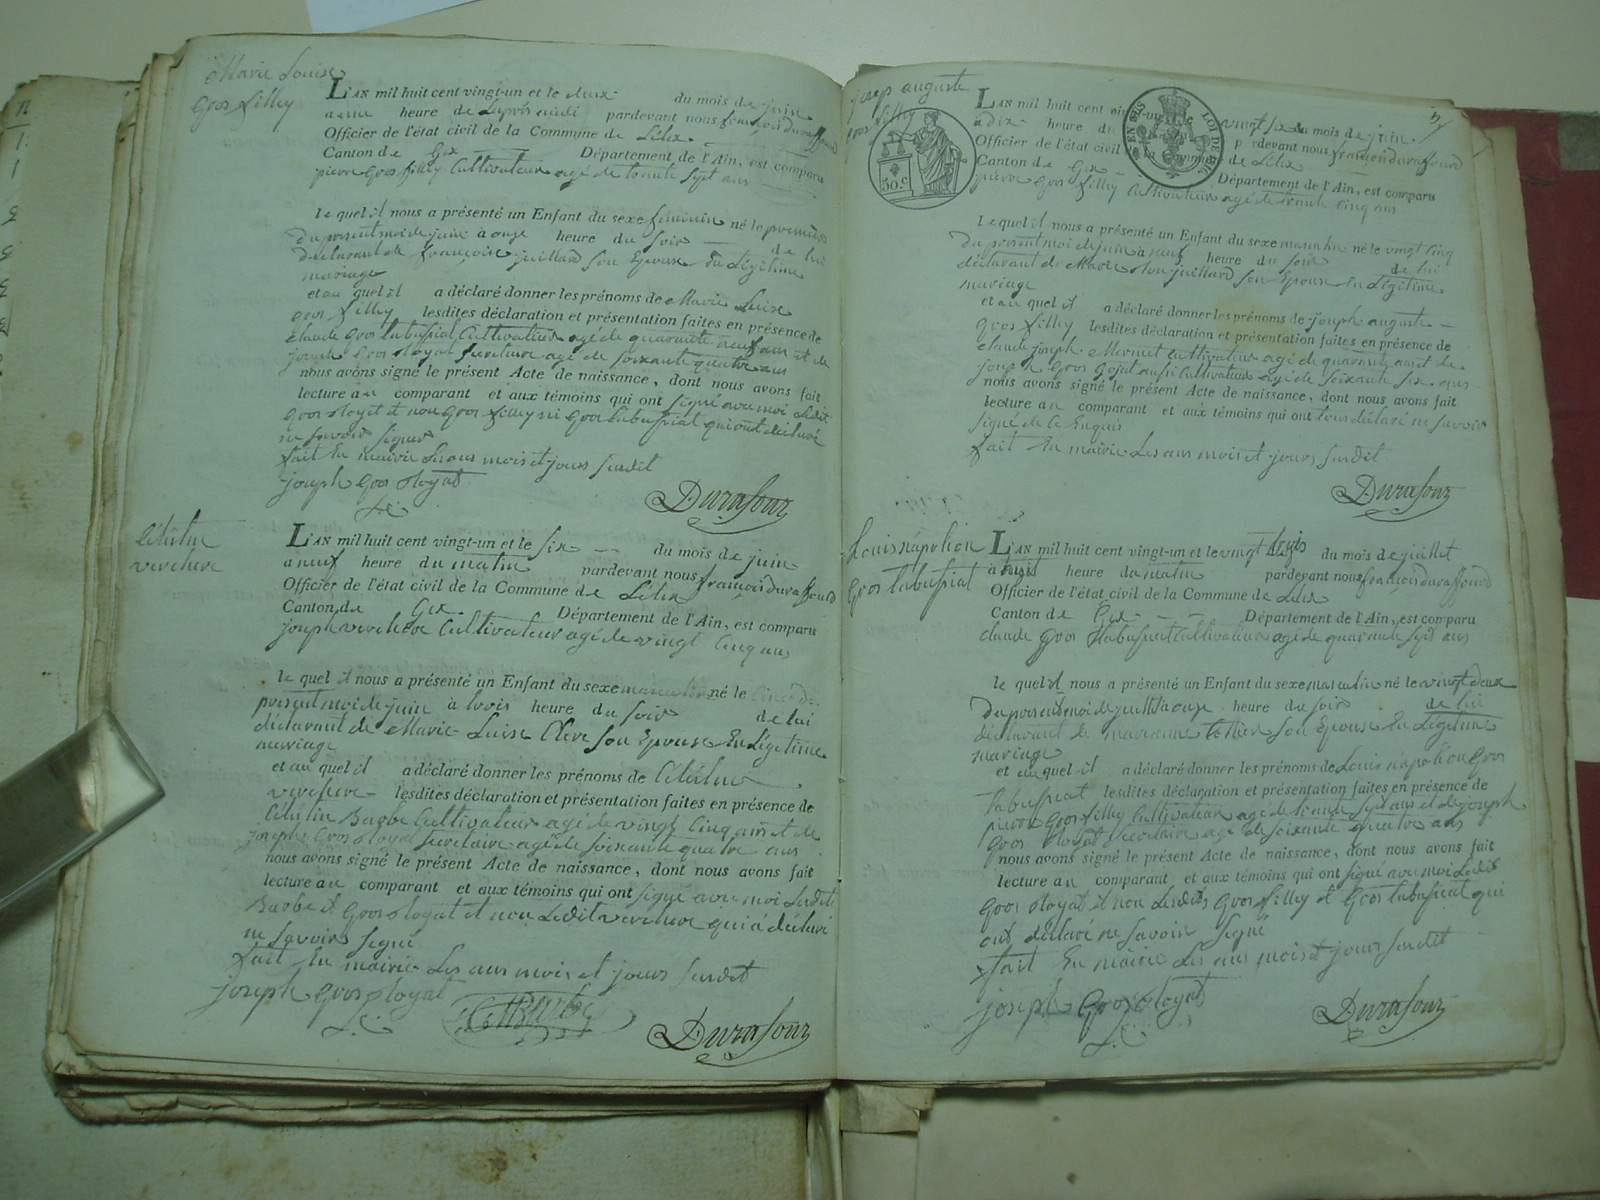 Marie Louise
Gros filley
L'AN mil huit cent vingt-un et le deux du mois de juin
a une heure de Laprès midi pardevant nous françois durafourd
Officier de l'état civil de la Commune de Lélex
Canton de Gex Département de l'Ain, est comparu
pierre Gros filley Cultivateur agé de trente sept ans
le quel il nous a présenté un Enfant du sexe feminin né le premier
du présent moi de juin à onze heure du soir de lui
déclarant de françoise juillard son Epouse En Légitime
mariage
et au quel il a déclaré donner les prénoms de Marie Luise
gros filley lesdites déclaration et présentation faites en présence de
claude Gros tabussiat Cultivateur agé de quarante neuf ans et de
joseph Gros Royat Secretaire agé de soixante quatre ans
nous avons signé le présent Acte de naissance, dont nous avons fait
lecture au comparant et aux témoins qui ont signé avec moi Ledit
Gros Royat et non Gros filley ni Gros tabussiat qui ont déclaré
ne savoir signer
fait En mairie Les ans mois et jours susdit
joseph Gros Royat
Durafour
Célestin
verchere
L'AN mil huit cent vingt-un et le six du mois de juin
a neuf heure du matin pardevant nous françois durafourd
Officier de l'état civil de la Commune de Lélex
Canton de Gex Département de l'Ain, est comparu
joseph verchere Cultivateur agé de vingt Cinq ans
le quel il nous a présenté un Enfant du sexe masculin né le Cinq du
présent moi de juin à trois heure du soir de lui
déclarant de Marie Luise Clere son Epouse En Légitime
mariage
et au quel il a déclaré donner les prénoms de Célestin
vercherre lesdites déclaration et présentation faites en présence de
Célestin Barbe Cultivateur agé de vingt Cinq ans et de
joseph Gros Royat Secrétaire agé de soixante quatre ans
nous avons signé le présent Acte de naissance, dont nous avons fait
lecture au comparant et aux témoins qui ont signé avec moi Lesdits
Barbe et Gros Royat et non Ledit vercherre qui a déclaré
ne savoir signé
fait En mairie Les ans mois et jours susdit
joseph Gros Royat
Barbe
Durafour
josep auguste
gros filley
L'AN mil huit cent vingt-un et le vingt six du mois de juin
à dix heure du pardevant nous françois durafourd
Officier de l'état civil de la Commune de Lélex
Canton de Gex Département de l'Ain, est comparu
pierre Gros filley Cultivateur agé de trente Cinq ans
50.c
TIMBRE
LOI DE
le quel il nous a présenté un Enfant du sexe masculin né le vingt Cinq
du présent moi de juin à neuf heure du soir de lui
déclarant de Marie juillard son Epouse En Légitime
mariage
et au quel il a déclaré donner les prénoms de joseph auguste
gros filley lesdites déclaration et présentation faites en présence de
claude joseph Mermet cultivateur agé de quarante ans et de
joseph Gros Gojat aussi Cultivateur agé de soixante six ans
nous avons signé le présent Acte de naissance, dont nous avons fait
lecture au comparant et aux témoins qui ont tous déclaré ne savoir
signé de ce Enquis
fait En mairie Les ans mois et jours susdit
Durafour
Louis napoléon
Gros tabussiat
L'AN mil huit cent vingt-un et le vingt trois du mois de juillet
à huit heure du matin pardevant nous françois durafourd
Officier de l'état civil de la Commune de Lélex
Canton de Gex Département de l'Ain, est comparu
claude Gros tabussiat Cultivateur agé de quarante sept ans
le quel il nous a présenté un Enfant du sexe masculin né le vingt deux
du présent moi de juillet à onze heure du soir de lui
déclarant de marianne son Epouse En Légitime
mariage
et au quel il a déclaré donner les prénoms de Louis napoléon Gros
tabussiat lesdites déclaration et présentation faites en présence de
pierre Gros filley Cultivateur agé de trente sept ans et de joseph
Gros Royat Secrétaire agé de soixante quatre ans
nous avons signé le présent Acte de naissance, dont nous avons fait
lecture au comparant et aux témoins qui ont signé avec moi Ledit
Gros Royat et non Lesdits Gros filley et Gros tabussiat qui
ont déclaré ne savoir signé
fait En mairie Les ans mois et jours susdit
joseph Gros Royat
Durafour